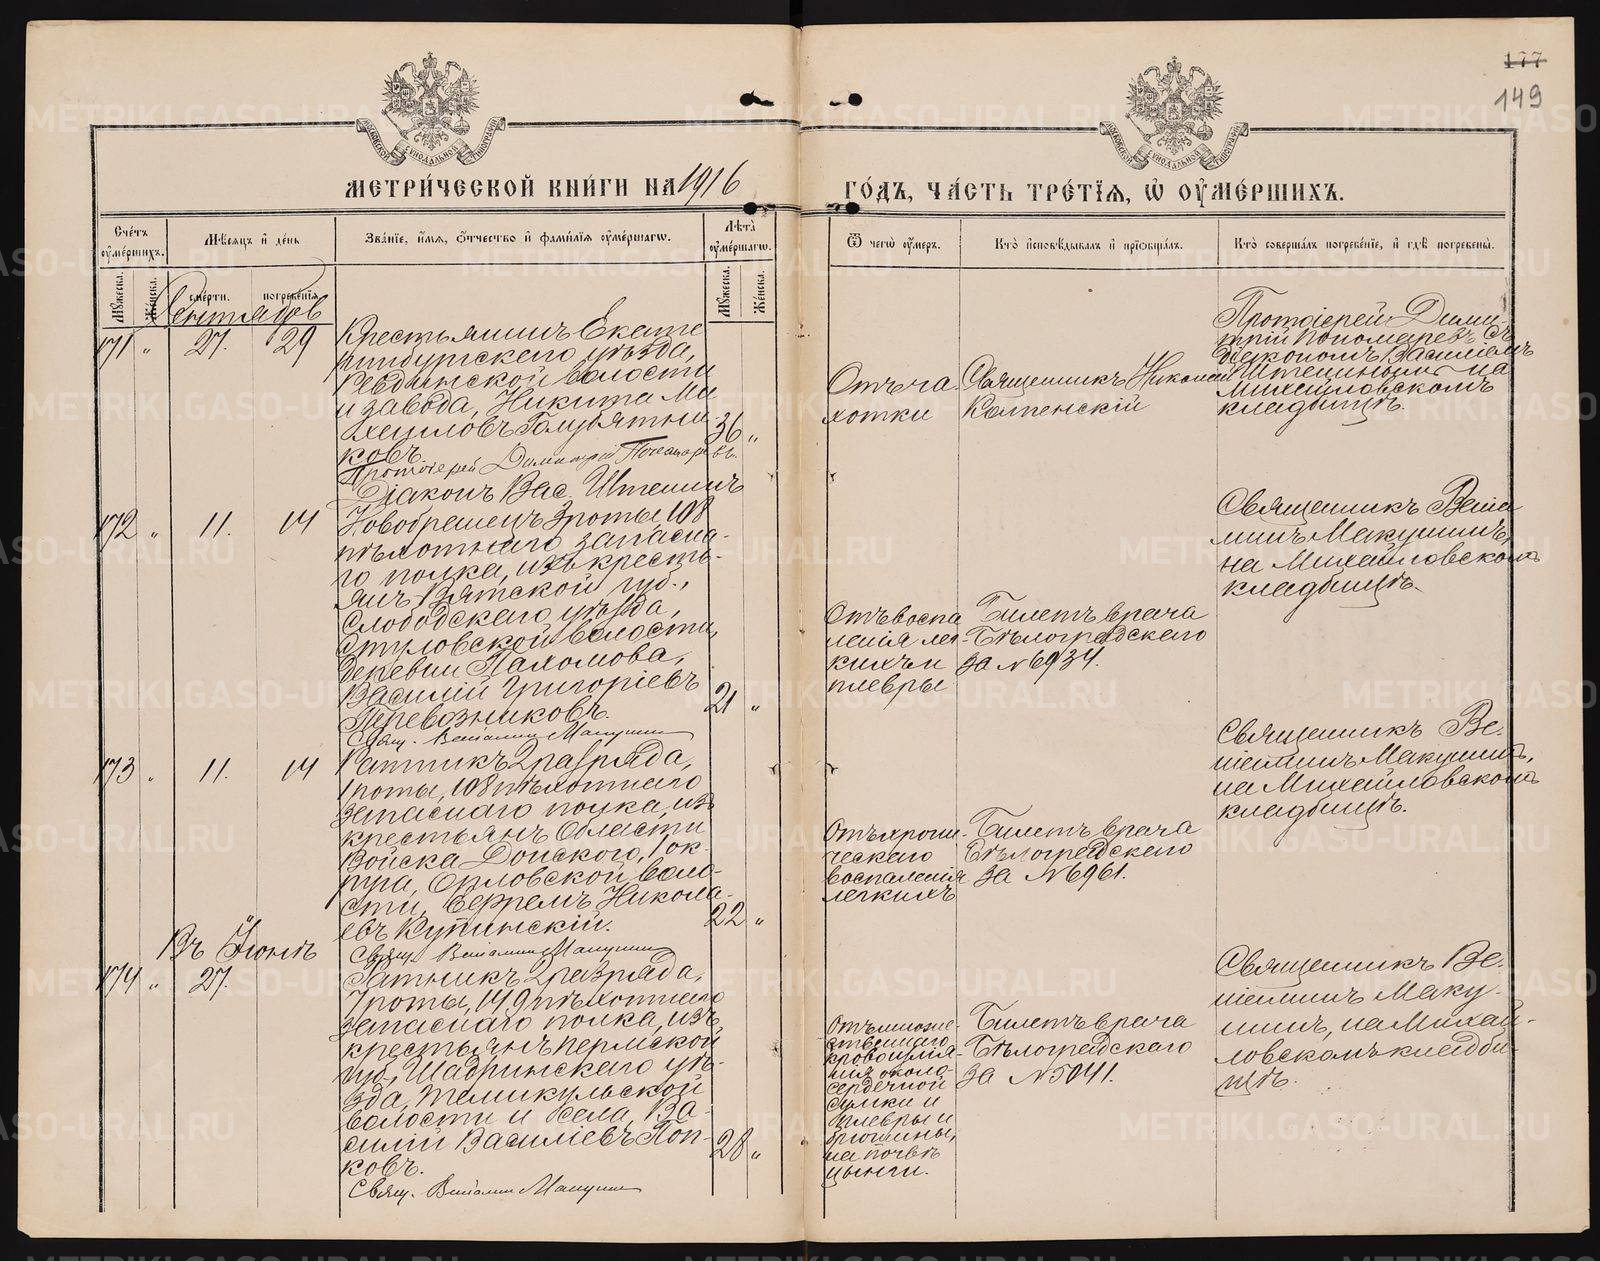 177
149
МОСКОВСКОЙ СѴНОДАЛЬНОЙ ТИПОГРАФІИ
МОСКОВСКОЙ СѴНОДАЛЬНОЙ ТИПОГРАФІИ
МЕТРИ́ЧЕСКОЙ КНИ́ГИ НА 1916
ГО́ДЪ, ЧА́СТЬ ТРЕ́ТІѦ, Ѡ ОУ҆МЕ́РШИХЪ.
Сче́тъ оу҆ме́ршихъ.
Мѣ́сяцъ и҆ де́нь
Зва́нїе, и҆́мѧ, ѻ҆́тчество и҆ фами́лїѧ оу҆ме́ршагѡ.
Лѣ́та оу҆ме́ршагѡ.
Ѿ чегѡ̀ оу҆́меръ.
Кто̀ и҆сповѣ́дывалъ и҆ прїѡбща́лъ.
Кто̀ соверша́лъ погребе́нїе, и҆ гдѣ̀ погребены̀.
Мꙋ́жеска.
Же́нска.
сме́рти.
погребе́нїѧ
Мꙋ́жеска.
Же́нска.
Сентябрь
171 " 27. 29
Крестьянинъ Екате
ринбургскаго уѣзда,
Ревдинской волости
и завода, Никита Ми
хайловъ Голубятни
ковъ.
36 "
Протоіерей Димитрій Пономаревъ.
Діаконъ Вас. Штенинъ
Отъ ча-
хотки
Священникъ Николай
Колпенскій
Протоіерей Дими
трій Пономаревъ съ
діакономъ Василіемъ
Штенинымъ на
Михайловскомъ
кладбищѣ.
172 " 11. 14
Новобранецъ 3 роты, 108
пѣхотнаго запасна-
го полка, изъ кресть-
янъ Вятской губ.,
Слободскаго уѣзда,
волости,
деревни Пахомова,
Василій Григоріевъ
Перевозниковъ.
21 "
Свящ. Веніаминъ Макушинъ
Отъ воспа
ленія лег-
кихъ и
плевры
Билетъ врача
Бѣлоградскаго
за № 6934.
Священникъ Веніа
минъ Макушинъ,
на Михайловскомъ
кладбищѣ.
173 " 11. 14
Ратникъ 2 разряда,
1 роты, 108 пѣхотнаго
запаснаго полка, изъ
крестьянъ Области
Войска Донского, 1 ок-
руга, Орловской воло-
сти, Никола-
евъ Купинскій.
22 "
Свящ. Веніаминъ Макушинъ
Отъ хрони-
ческаго
воспаленія
легкихъ
Билетъ врача
Бѣлоградскаго
за № 6961.
Священникъ Ве-
ніаминъ Макушинъ,
на Михайловскомъ
кладбищѣ.
Въ Іюнѣ
174 " 27.
Ратникъ 2 разряда,
7 роты, 149 пѣхотнаго
запаснаго полка, изъ
крестьянъ Пермской
губ., Шадринскаго уѣ-
зда,
волости и села, Ва-
силій Василіевъ Поп-
ковъ.
28 "
Свящ. Веніаминъ Макушинъ
Отъ множе-
ственнаго
кровоизлія-
нія около-
сердечной
сумки и
плевры и
брюшины,
на почвѣ
цынги.
Билетъ врача
Бѣлоградскаго
за № 5041.
Священникъ Ве-
ніаминъ Маку-
шинъ, на Михай-
ловскомъ кладби-
щѣ.
METRIKI.GASO-URAL.RU